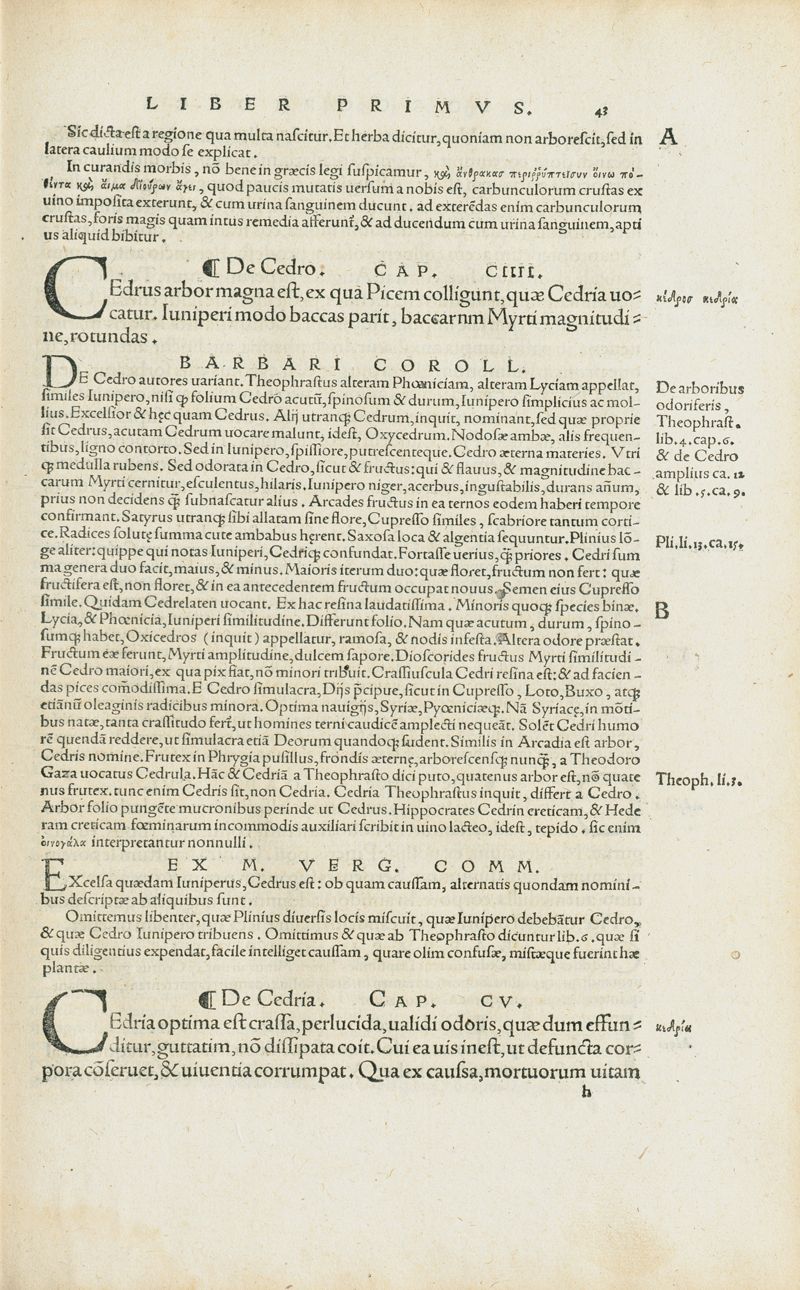 LIBER PRIMVS. 43
Sic dicta est a regione qua multa nascitur. Et herba dicitur, quoniam non arborescit, sed in
latera caulium modo se explicat.
In curandis morbis, nō bene in græcis legi suspicamur,
, quod paucis mutatis uersum a nobis est, carbunculorum crustas ex
uino imposita exterunt, & cum urina sanguinem ducunt. ad exterēdas enim carbunculorum
crustas, foris magis quam intus remedia afferunt̃, & ad ducendum cum urina sanguinem, apti
us aliquid bibitur.
A
¶ De Cedro. CAP. CIIII.
CEdrus arbor magna est, ex qua Picem colligunt, quæ Cedria uo-
catur. Iuniperi modo baccas parit, baccarum Myrti magnitudi-
ne, rotundas.
κέδρος κεδρία
BARBARI COROLL.
DE Cedro autores uariant. Theophrastus alteram Phœniciam, alteram Lyciam appellat,
similes Iunipero, nisi ꝙ folium Cedro acutū, spinosum & durum, Iunipero simplicius ac mol-
lius. Excelsior & hęc quam Cedrus. Alij utranqꝫ Cedrum, inquit, nominant, sed quæ proprie
sit Cedrus, acutam Cedrum uocare malunt, idest, Oxycedrum. Nodosæ ambæ, alis frequen-
tibus, ligno contorto. Sed in Iunipero, spissiore, putrescenteque. Cedro æterna materies. Vtri
qꝫ medulla rubens. Sed odorata in Cedro, sicut & fructus: qui & flauus, & magnitudine bac-
carum Myrti cernitur, esculentus, hilaris. Iunipero niger, acerbus, ingustabilis, durans añum,
prius non decidens ꝙ̃ subnascatur alius. Arcades fructus in ea ternos eodem haberi tempore
confirmant. Satyrus utranqꝫ sibi allatam sine flore, Cupresso similes, scabriore tantum corti-
ce. Radices solutę summa cute ambabus hęrent. Saxosa loca & algentia sequuntur. Plinius lō-
ge aliter: quippe qui notas Iuniperi, Cedriqꝫ confundat. Fortasse uerius, ꝙ̃ priores. Cedri sum
ma genera duo facit, maius, & minus. Maioris iterum duo: quæ floret, fructum non fert: quæ
fructifera est, non floret, & in ea antecedentem fructum occupat nouus. Semen eius Cupresso
simile. Quidam Cedrelaten uocant. Ex hac resina laudatissima. Minoris quoqꝫ species binæ.
Lycia, & Phœnicia, Iuniperi similitudine. Differunt folio. Nam quæ acutum, durum, spino-
sumqꝫ habet, Oxicedros (inquit) appellatur, ramosa, & nodis infesta. Altera odore præstat.
Fructum eæ ferunt, Myrti amplitudine, dulcem sapore. Dioscorides fructus Myrti similitudi-
nē Cedro maiori, ex qua pix fiat, nō minori tribuit. Crassiuscula Cedri resina est: & ad facien-
das pices com̃odissima. E Cedro simulacra, Dijs p̃cipue, sicut in Cupresso, Loto, Buxo, atqꝫ
etiānū oleaginis radicibus minora. Optima nauigijs, Syriæ, Pyœniciæqꝫ. Nā Syriace, in mōti-
bus natæ, tanta crassitudo fert̃, ut homines terni caudicē amplecti nequeāt. Solēt Cedri humo
rē quendā reddere, ut simulacra etiā Deorum quandoqꝫ sudent. Similis in Arcadia est arbor,
Cedris nomine. Frutex in Phrygia pusillus, frondis æternę, arborescensqꝫ nunqꝫ̃, a Theodoro
Gaza uocatus Cedrula. Hāc & Cedriā a Theophrasto dici puto, quatenus arbor est, nō quate
nus frutex. tunc enim Cedris sit, non Cedria. Cedria Theophrastus inquit, differt a Cedro.
Arbor folio pungēte mucronibus perinde ut Cedrus. Hippocrates Cedrin creticam, & Hede
ram creticam fœminarum incommodis auxiliari scribit in uino lacteo, idest, tepido. sic enim
οἰνογάλα interpretantur nonnulli.
De arboribus
odoriferis,
Theophrast.
lib.4.cap.6.
& de Cedro
amplius ca. 12
& lib.5.ca.9.
Pli.li.13.ca.15.
B
Theoph.li.3.
EX M. VERG. COMM.
EXcelsa quædam Iuniperus, Cedrus est: ob quam caussam, alternatis quondam nomini-
bus descriptæ ab aliquibus sunt.
Omittemus libenter, quæ Plinius diuersis locis miscuit, quæ Iunipero debebātur Cedro,
& quæ Cedro Iunipero tribuens. Omittimus & quæ ab Theophrasto dicuntur lib.6. quæ si
quis diligentius expendat, facile intelliget caussam, quare olim confusæ, mistæque fuerint hæ
plantæ.
¶ De Cedria. CAP. CV.
CEdria optima est crassa, perlucida, ualidi odoris, quæ dum effun-
ditur, guttatim, nō dissipata coit. Cui ea uis inest, ut defuncta cor-
pora cōseruet, & uiuentia corrumpat. Qua ex caussa, mortuorum uitam
κεδρία
h